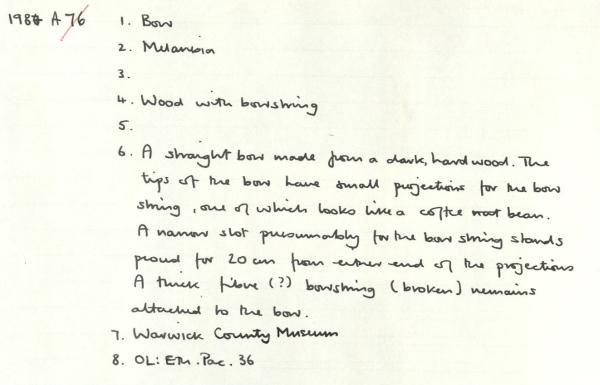 1987 A 76
1. Bow
2. Melanesia
3.
4. Wood with bowstring
5.
6. A straight bow made from a dark, hard wood. The
tips of the bow have small projections for the bow
string, one of which looks like a coffee root bean.
A narrow slot presumably for the bow string stands
proud for 20 cm from either end of the projections
A thick fibre (?) bowstring (broken) remains
attached to the bow.
7. Warwick County Museum
8. OL: Eth. Pac. 36